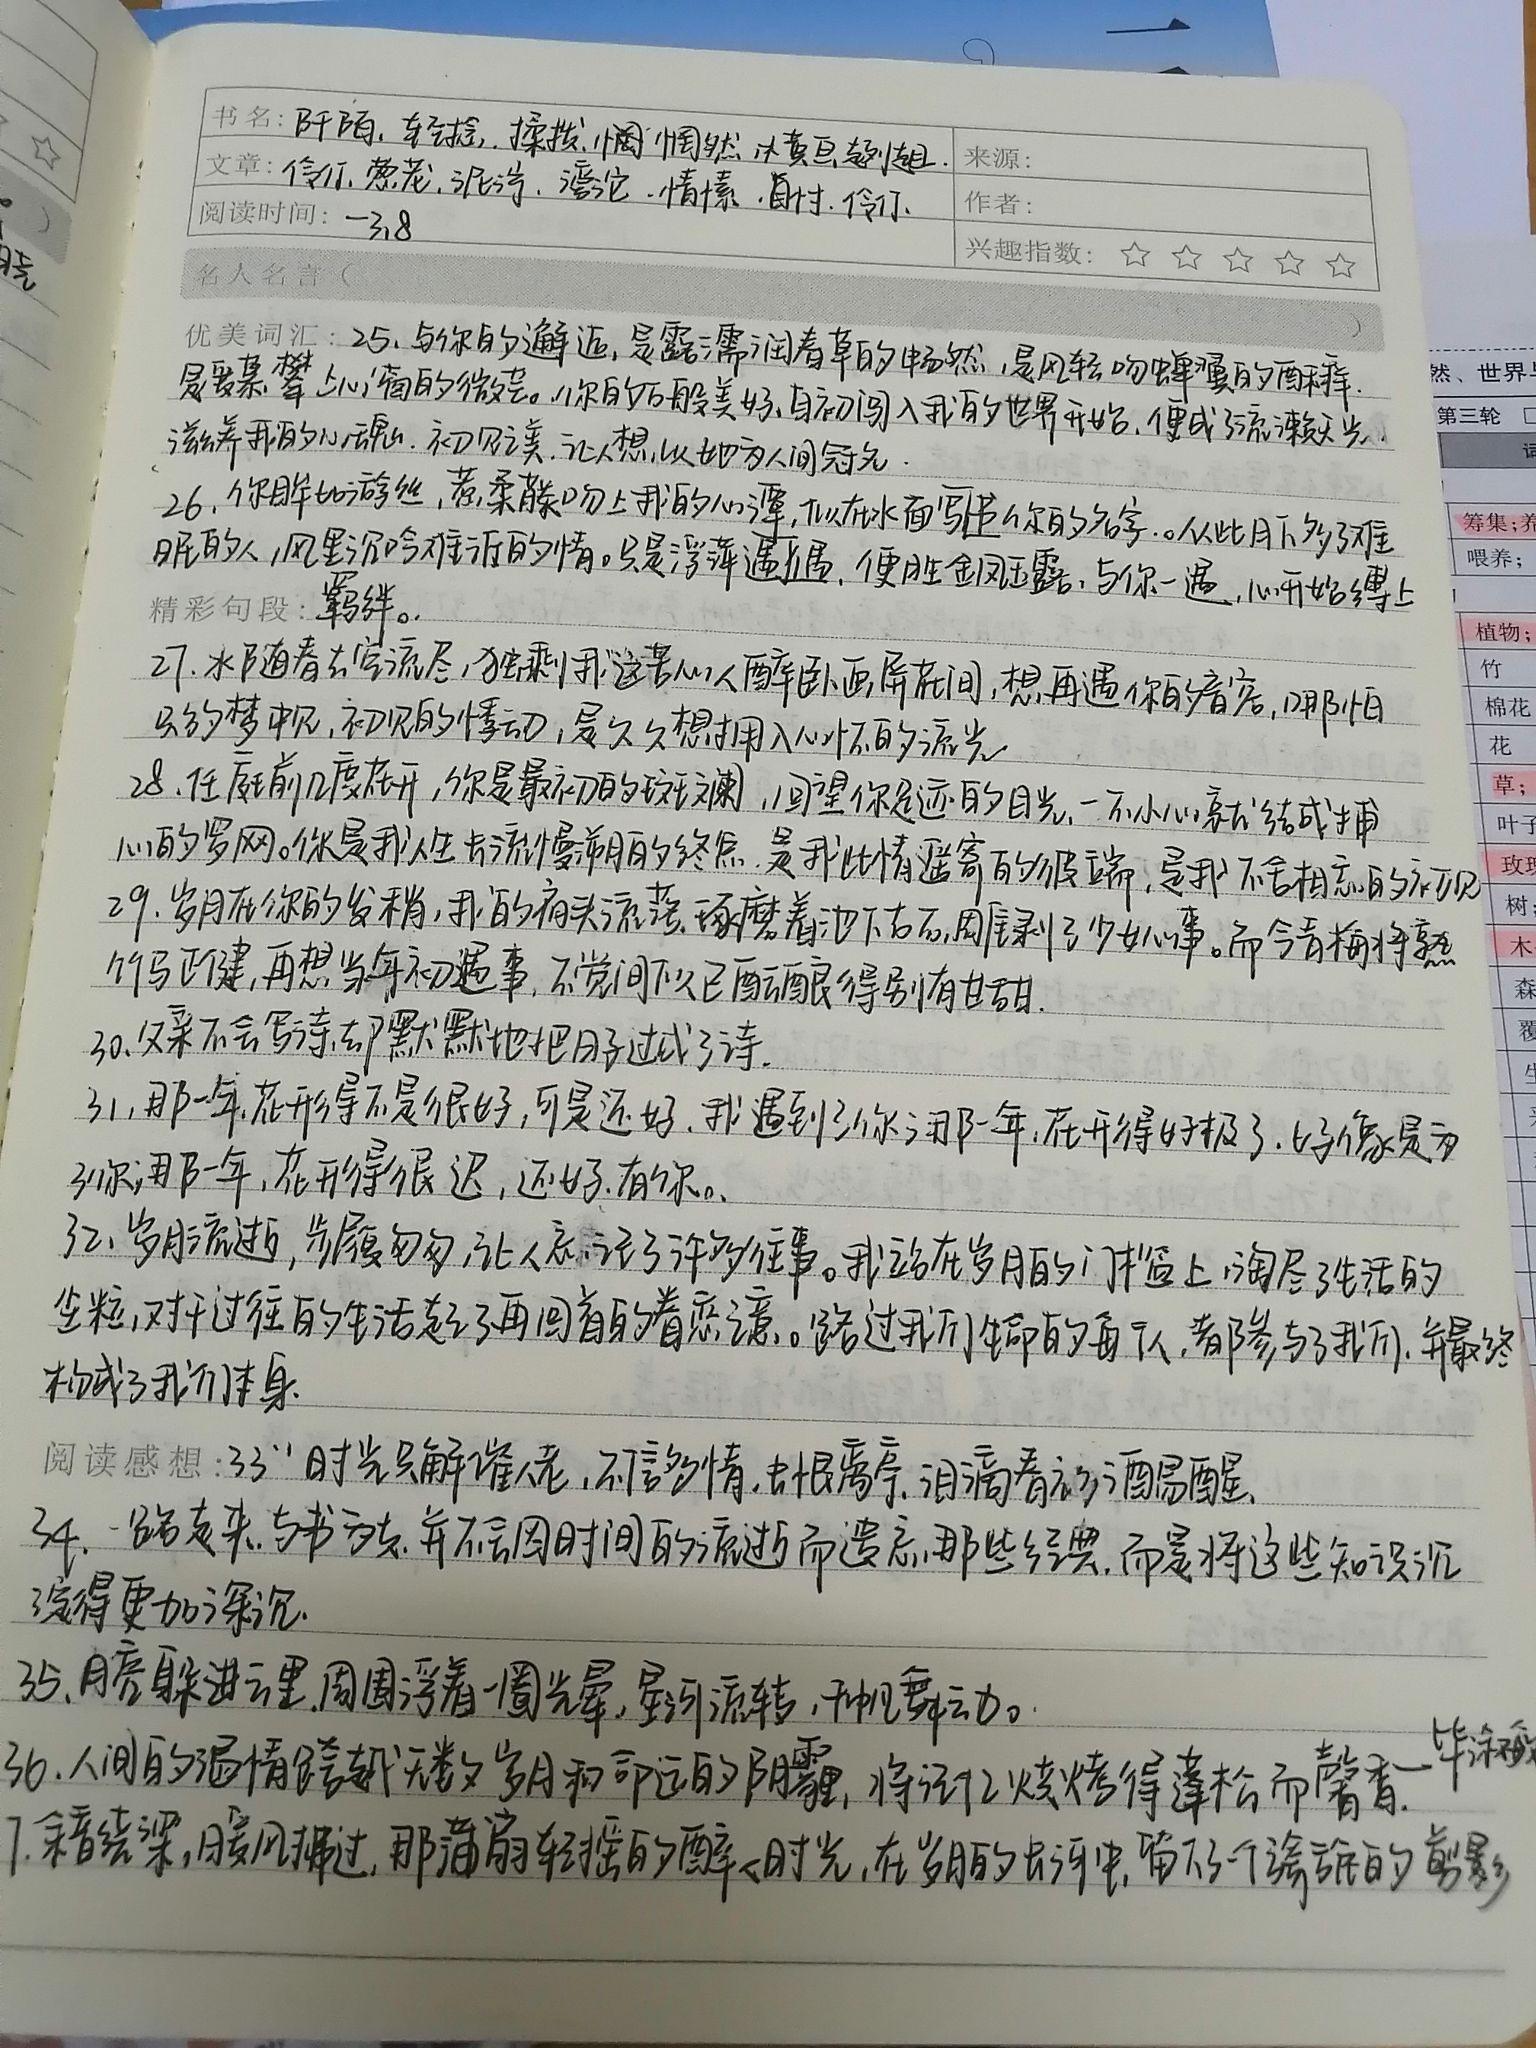 书名: 阡陌. 轻捻. 揉拨. 惆惆然. 趔趄.
来源:
文章: 伶仃. 葱茏. 泥泞. 滂沱. 情愫. 自忖. 伶仃.
作者:
阅读时间: -3.8
兴趣指数: ☆ ☆ ☆ ☆ ☆
名人名言 ( )
优美词汇: 25、与你的邂逅, 是露濡润春草的畅然, 是风轻吻蝉翼的酣稣.
是爱慕攀上心窗的微芒。你的百般美好, 自初闯入我的世界开始, 便成了流濑天光,
滋养我的心魂. 初见之美, 让人想, 以她为人间冠先.
26、你眸如游丝, 惹柔藤吻上我的心潭, 似在水面写堪你的名字.。从此月下多了难
眠的人, 风里沉吟难诉的情。只是浮萍遇, 便胜金风玉露. 与你一遇, 心开始缚上
精彩句段: 羁绊。
27. 水随春去空流尽, 独剩我这苦心人醉卧画屏花间, 想再遇你的音容, 哪怕
只约梦中见, 初见的悸动, 是久久想拥入心怀的流光
28. 任庭前几度花开, 你是最初的斑斓, 回望你走远的目光, 一不小心就结成捕
心的罗网。你是我人生去流慢溯的终点. 是我此情遥寄的彼端, 是我不舍相忘的初见
29. 岁月在你的发梢, 我的肩头流荡. 琢磨着池下古石, 周剥了少女心事。而今青梅将熟
竹马已健, 再想当年初遇事, 不觉间似已酝酿得别有甘甜.
30. 父亲不会写诗, 却默默地把日子过成了诗.
31, 那一年, 花开得不是很好, 可是还好, 我遇到了你; 那一年, 花开得好极了, 好像是为
了你; 那一年, 花开得很迟, 还好, 有你。
32、岁月流逝, 步履匆匆, 让人忘记了许多往事。我站在岁月的门槛上, 淘尽了生活的
尘粒, 对于过往的生活起了再回首的眷恋之意。路过我们生命的每个人, 都参与了我们, 并最终
构成了我们本身.
阅读感想: 33“时光只解催人老, 不信多情, 长恨离亭, 泪滴春衫酒易醒.
34. 一路走来, 与书为友. 并不会因时间的流逝而遗忘那些经典, 而是将这些知识沉
淀得更加深沉.
35、月亮躲进云里, 周围浮着一圈光晕, 星河流转, 千帆舞动。
36. 人间的温情跨越无数岁月和命运的阴霾, 将记忆烧烤得蓬松而馨香.—毕淑敏
7. 余音绕梁, 暖风拂过, 那蒲扇轻摇的醉人时光, 在岁月的长河中, 留下了一个斑斓的剪影
然、世界
第三轮
筹集; 养
喂养;
植物;
竹
棉花
花
草;
叶子
玫瑰
树;
木
森
覆